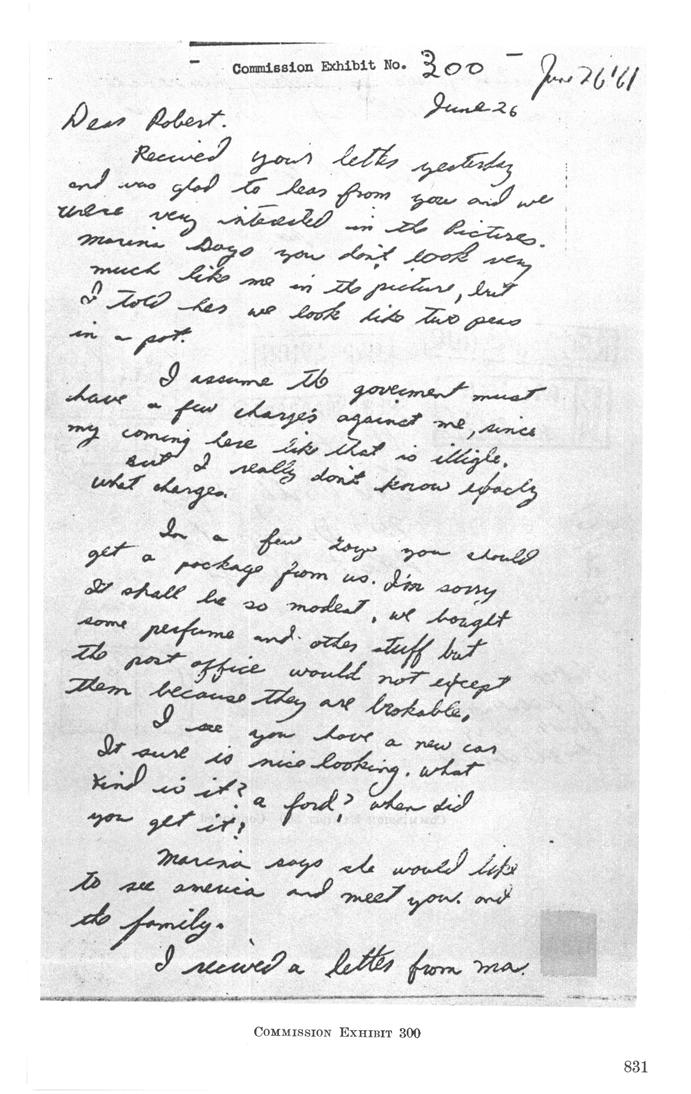 Commission Exhibit No. 300
June 26 '61
June 26
Dear Robert.
Recived your letter yesterday
and was glad to hear from you and we
were very interested in the Pictures.
Marina says you don't look very
much like me in the picture, but
I told her we look like two peas
in a pot.
I assume the goverment must
have a few charge's against me, since
my coming here like that is illigle.
But I really don't know exfacly
what charges.
In a few days you should
get a package from us. I'm sorry
It shall be so modest, we bought
some perfume and other stuff but
the post office would not except
them because they are brokable.
I see you have a new car
It sure is nice looking. what
kind is it? a ford? when did
you get it?
Marina says she would like
to see america and meet you. and
the family.
I recived a letter from ma.
COMMISSION EXHIBIT 300
831